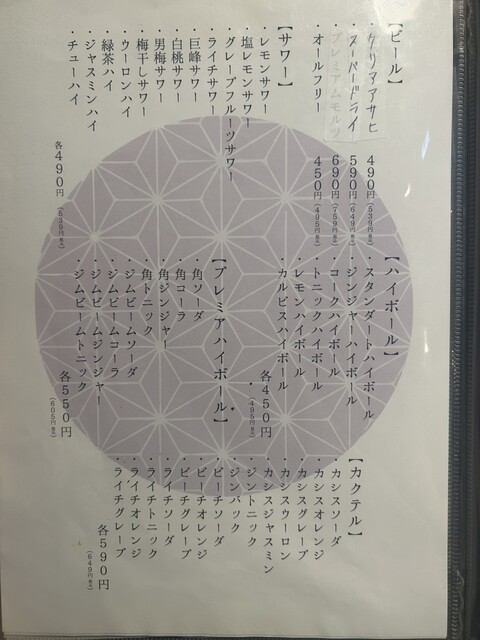 【ビール】
・クリアアサヒ 490円（539円税込）
・スーパードライ 590円（649円税込）
・プレミアムモルツ 690円（759円税込）
・オールフリー 450円（495円税込）
【サワー】
・レモンサワー
・塩レモンサワー
・グレープフルーツサワー
・ライチサワー
・巨峰サワー
・白桃サワー
・男梅サワー
・梅干しサワー
・ウーロンハイ
・緑茶ハイ
・ジャスミンハイ
・チューハイ
各490円（539円税込）
【ハイボール】
・スタンダートハイボール
・ジンジャーハイボール
・コークハイボール
・トニックハイボール
・レモンハイボール
・カルピスハイボール
各450円（495円税込）
【プレミアハイボール】
・角ソーダ
・角コーラ
・角ジンジャー
・角トニック
・ジムビームソーダ
・ジムビームコーラ
・ジムビームジンジャー
・ジムビームトニック
各550円（605円税込）
【カクテル】
・カシスソーダ
・カシスオレンジ
・カシスグレープ
・カシスウーロン
・カシスジャスミン
・ジントニック
・ジンバック
・ピーチソーダ
・ピーチオレンジ
・ピーチグレープ
・ライチソーダ
・ライチトニック
・ライチオレンジ
・ライチグレープ
各590円（649円税込）